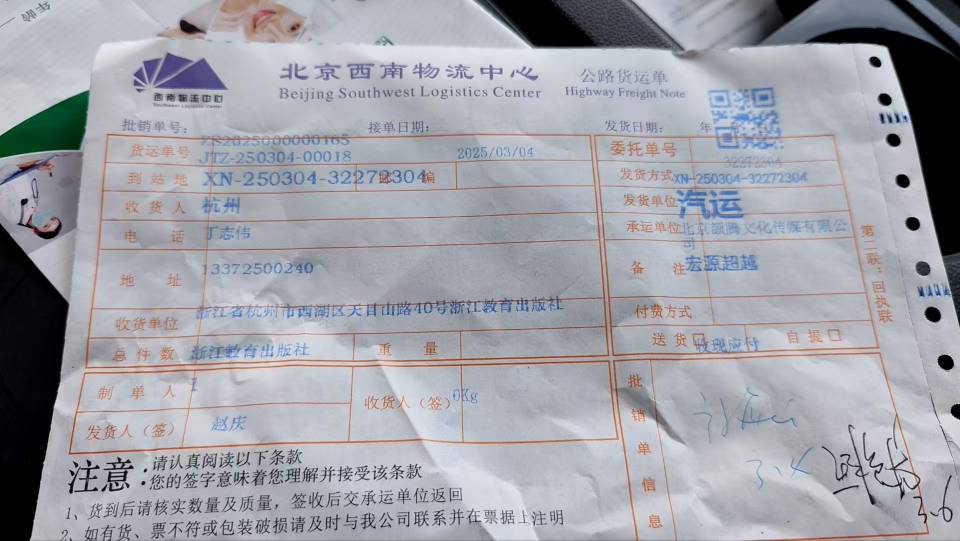 年龄
西南物流中心
Southwest Logistics Center
北京西南物流中心
Beijing Southwest Logistics Center
公路货运单
Highway Freight Note
批销单号：
接单日期：
发货日期： 年
ZS2025000000165
货运单号 JTZ-250304-00018
2025/03/04
委托单号
32272304
到站地 XN-250304-32272304 邮 编
发货方式 XN-250304-32272304
收货人 杭州
发货单位 汽运
电 话 丁志伟
承运单位 北京颉腾文化传媒有限公司
地 址 13372500240
备 注 宏源超越
浙江省杭州市西湖区天目山路40号浙江教育出版社
收货单位
付费方式
总件数 浙江教育出版社
重 量
送货□ 收现应付 自提□
制单人 1
收货人（签） 0Kg
发货人（签） 赵庆
批销单信息
3.4
3.6
第二联：回执联
注意：
请认真阅读以下条款
您的签字意味着您理解并接受该条款
1、货到后请核实数量及质量，签收后交承运单位返回
2、如有货、票不符或包装破损请及时与我公司联系并在票据上注明